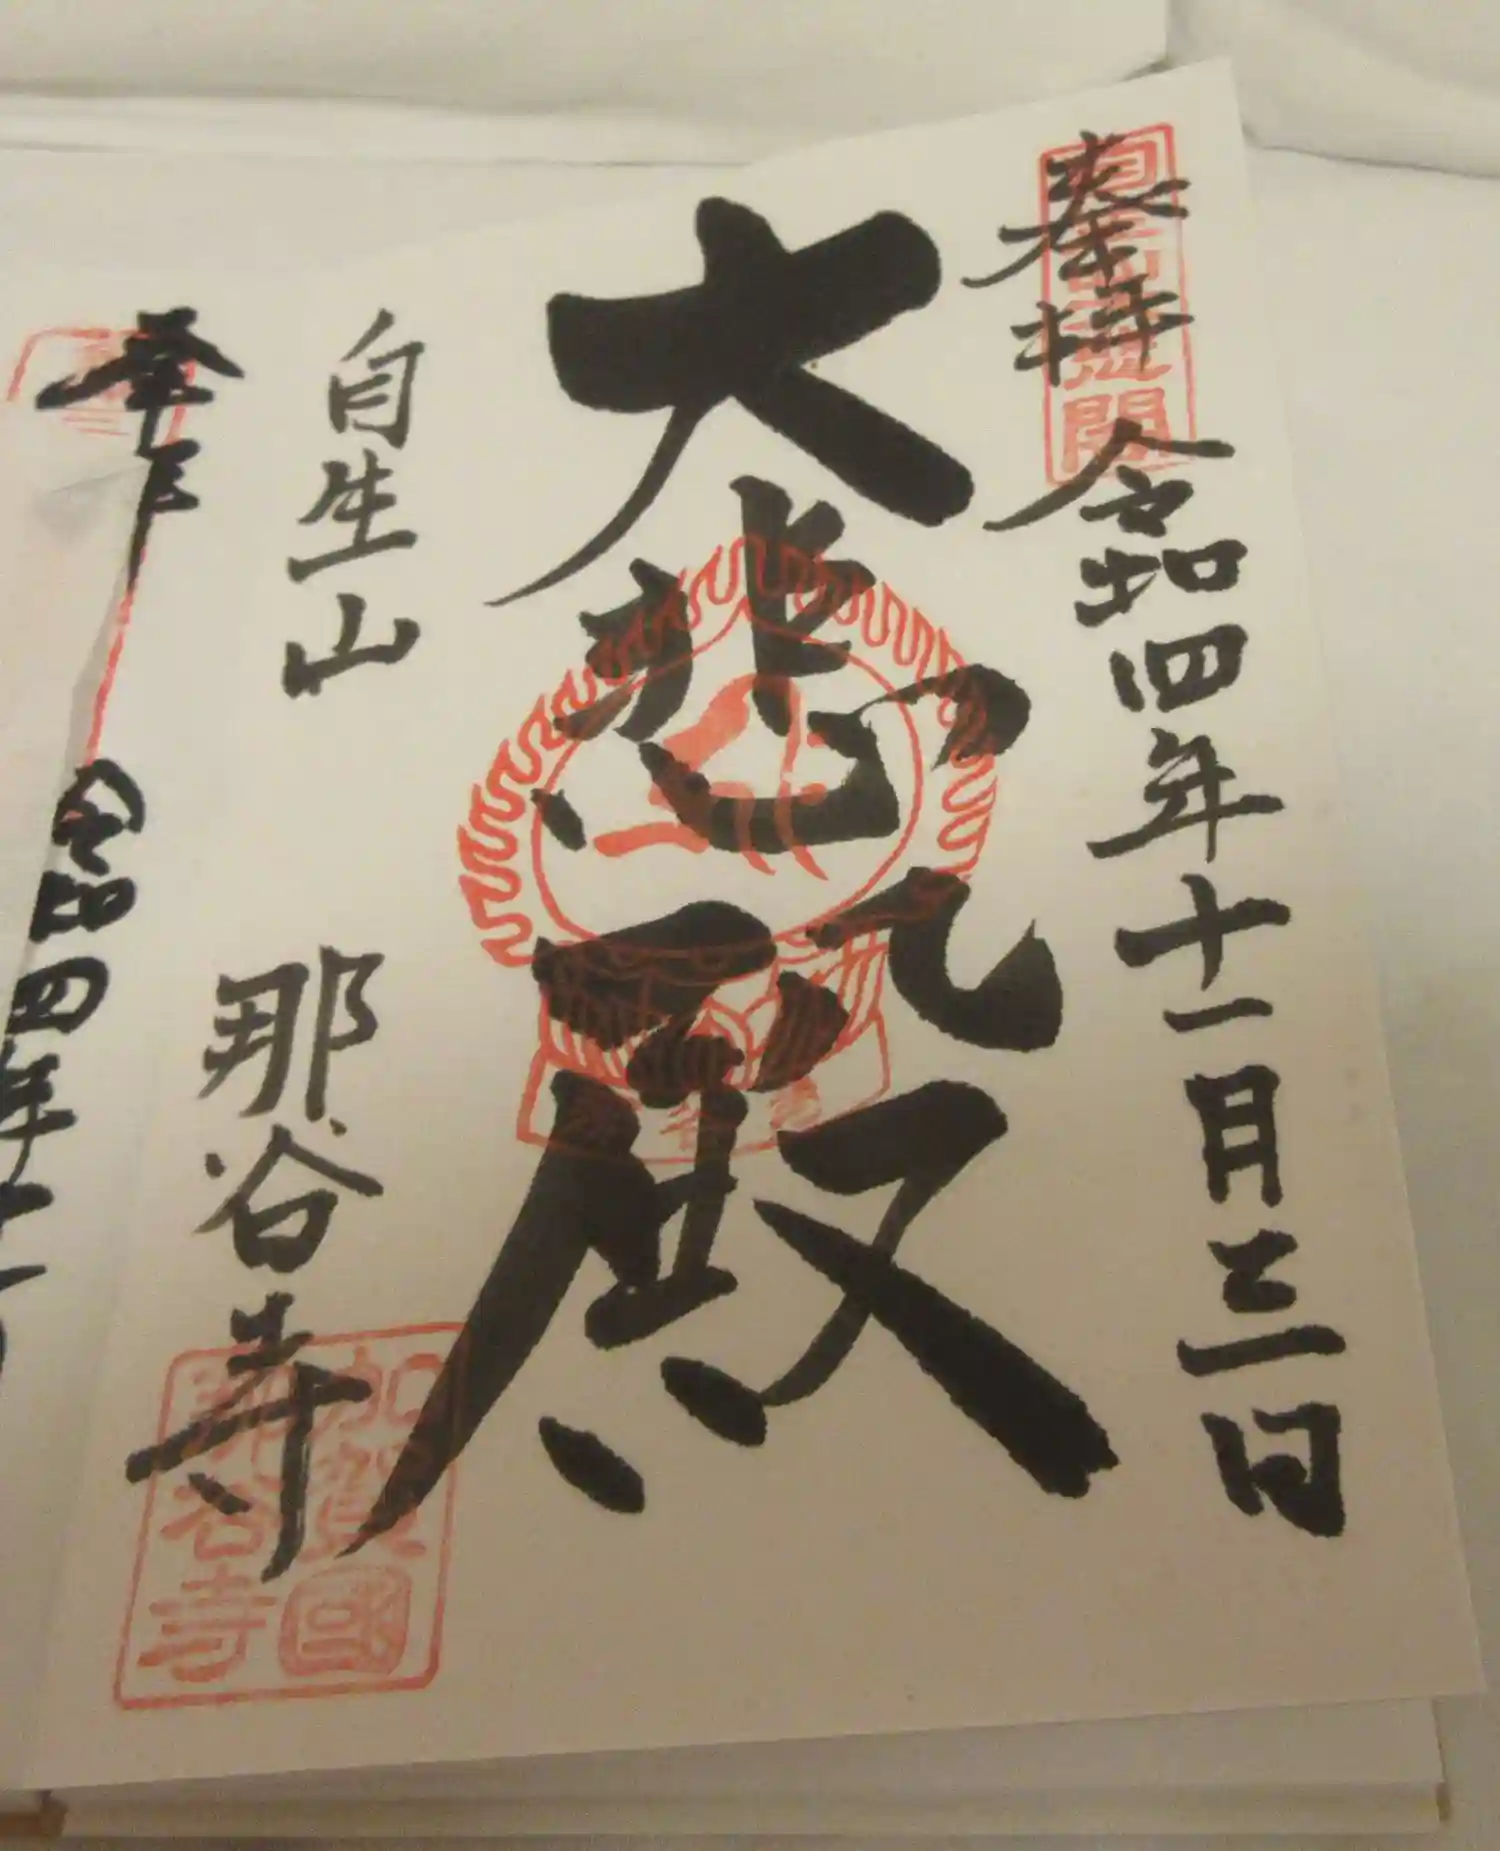 奉拝
令和四年十一月三日
大悲殿
自生山
那谷寺
加賀國
那谷寺
令和四年十一